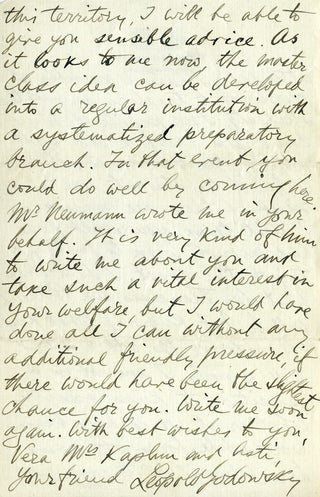 this territory, I will be able to
give you sensible advice. As
it looks to me now, the master
class idea can be developed
into a regular institution with
a systematized preparatory
branch. In that event, you
could do well by coming here.
Mr. Neumann wrote me in your
behalf. It is very kind of him
to write me about you and
take such a vital interest in
your welfare, but I would have
done all I can without any
additional friendly pressure, if
there would have been the slightest
chance for you. Write me soon
again. With best wishes to you,
Vera, Mrs Kaplun and
Your friend Leopold Godowsky